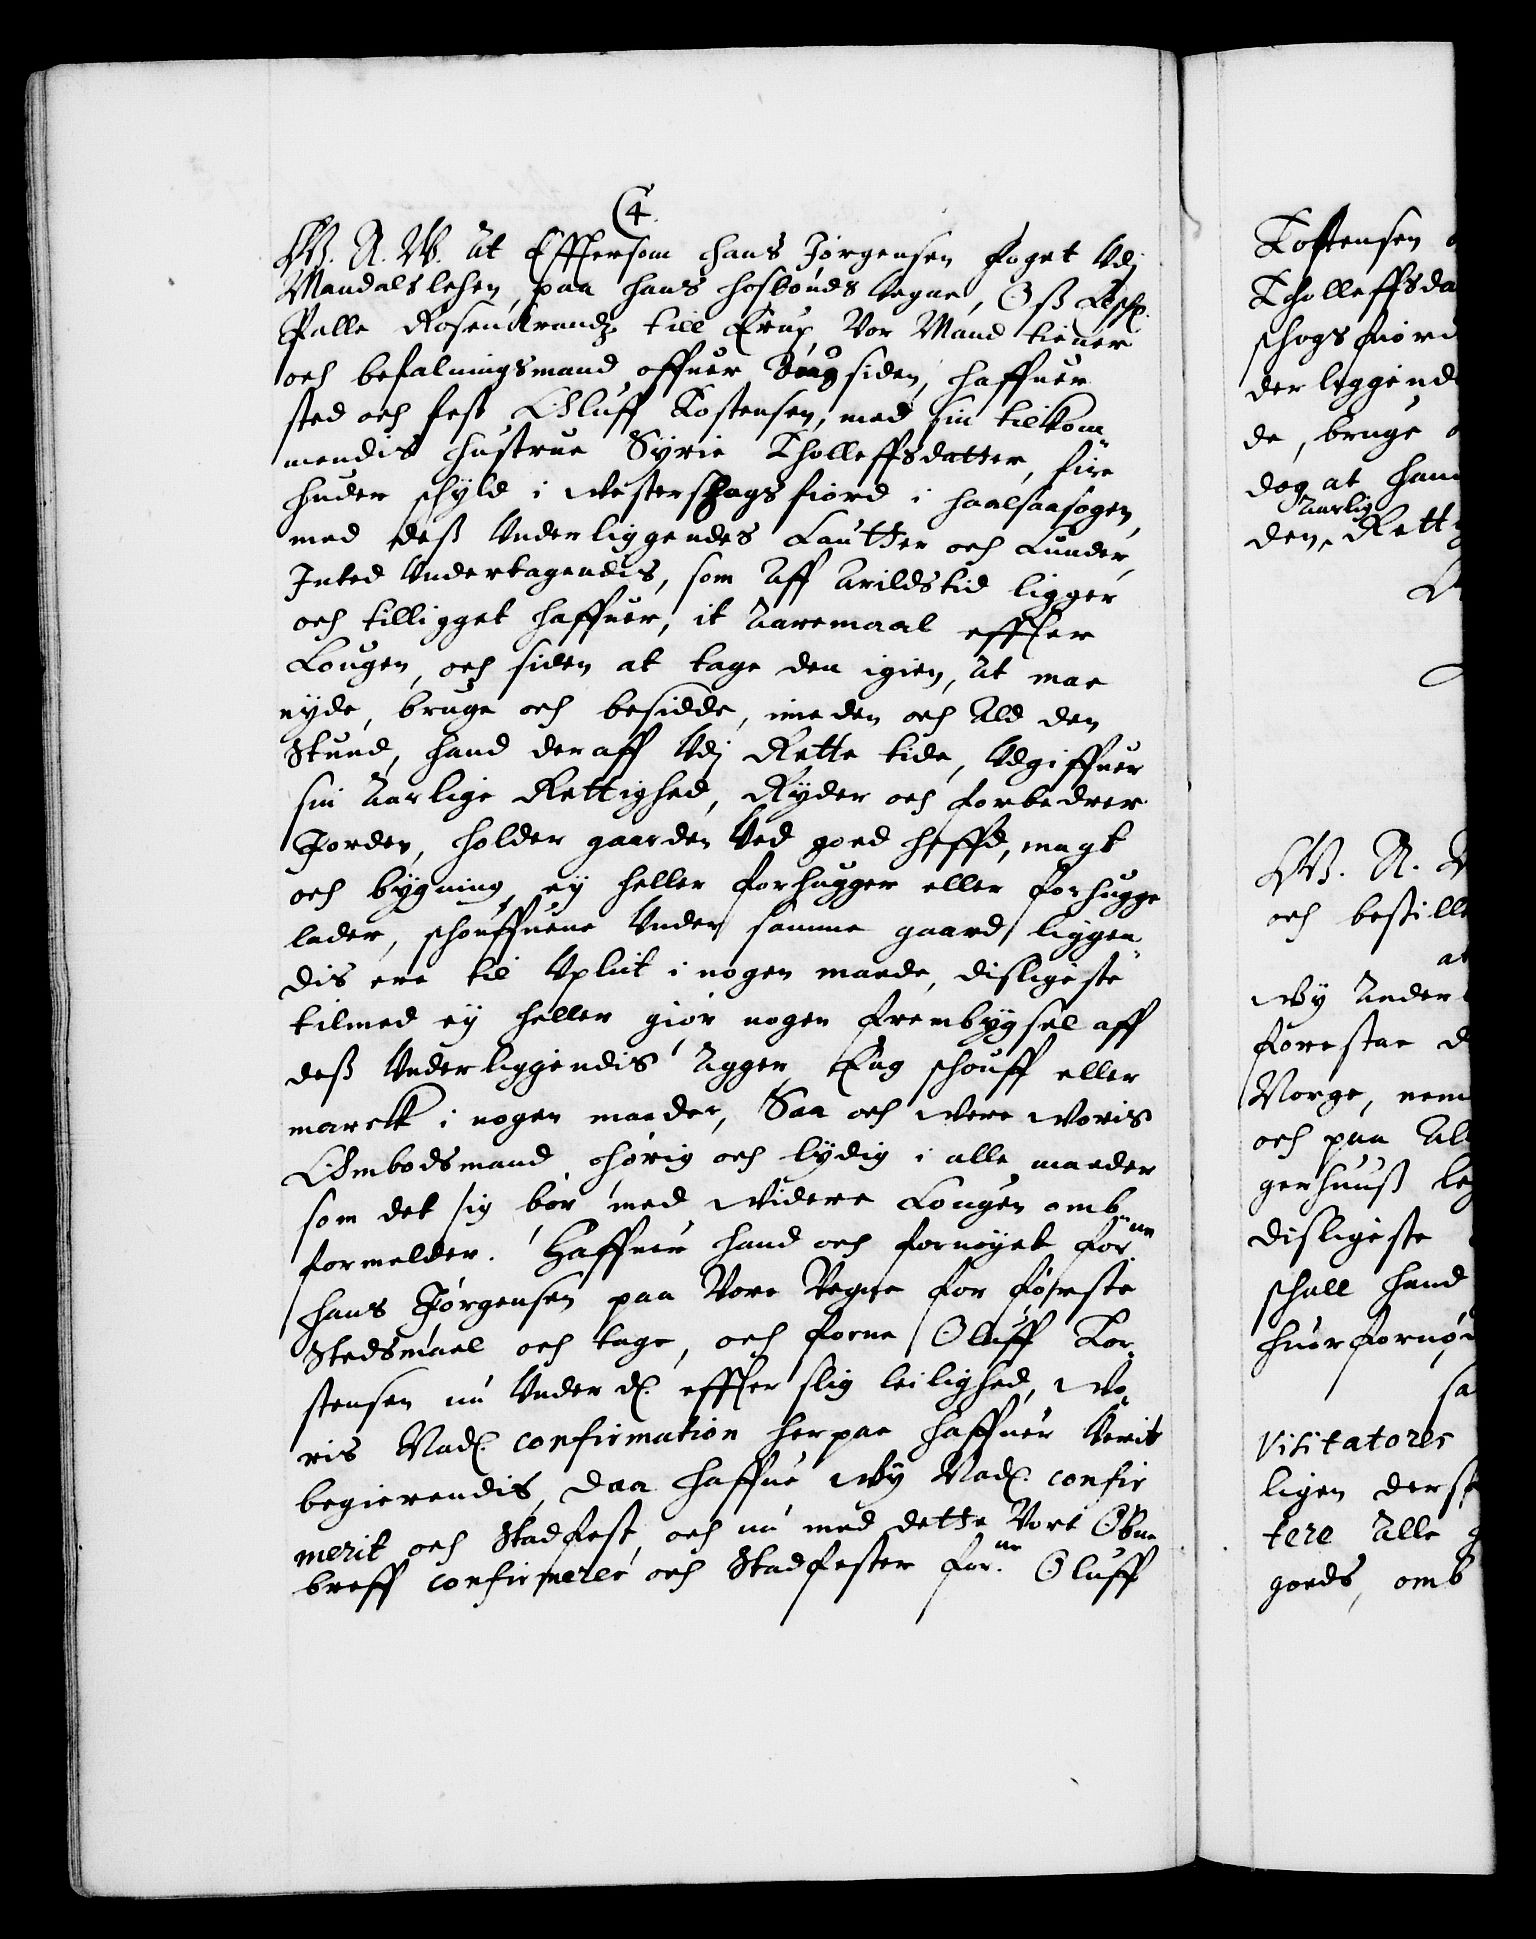 C4.
W. A. W. At Efftersom Hans Jørgensen Foget Udj
Mandalslehen, paa hans hosbonds vegne, Oß Elsk:
Palle Rosenkrandz till Krup, Vor Mand tiener
och befalningsmand offuer Bungsiden, haffuer
sted och fest Oluff Tostensen, med sin tilkom¬
mendis hustrue Syrie Tholleffsdatter, fire
huder schyld i Westerschogsfiord i Haalsaasogen,
med deß Underliggendes Lutter och Lunder,
Inted Undertagendis, som Aff Arildstid ligger
och tilligget haffuer, it Aaremaal effter
Lougen, och siden at tage den igien, At maa
nyde, bruge och beside, imeden och Ald den
Stund, hand deraff Udj Rette tide, Udgiffuer
sin Aarlige Rettighed, Ryder och forbedrer
Jorden, holder gaarden Ved goed heffd, magt
och bygning, ey heller forhugger eller forhugge
lader, schouffuene Under samme gaard liggen¬
dis ere til Uplict i nogen maade, disligeste
tilmed ey heller giør nogen frembygsel aff
deß Underliggendis Agger Eng schouff eller
marck i nogen maader, Saa och Were Woris
Ombodsmand, ohørig och lydig i alle maader
som det sig bør med Widere Lougen omb¬
formelder. Haffuer hand och fornøyet for:ne
Hans Jørgensen paa Vore Vegne for første
Stedsmaal och tage, och forne Oluff Tor¬
stensen nu Under d: effter slig leilighed, Wo¬
ris Nad: confirmation herpaa haffuer Verit
begierendis, Daa haffue Wy Nad: confir
merit och Stadfest, och nu med dette Vort Obne
breff confirmerer och Stadfester for:ne Oluff
Tostensen
Tholleffsda
schogsfiord
der liggend
de, bruge
dog at hand
Aarlig
den, Rett
W. A. W
och bestill
at
Wy Under
forestae d
Norge, nem
och paa Al
gerhuuß le
disligeste
schall hand
huor fornø
sa
Visitatores
ligen derf
tere Alle
goeds, omb